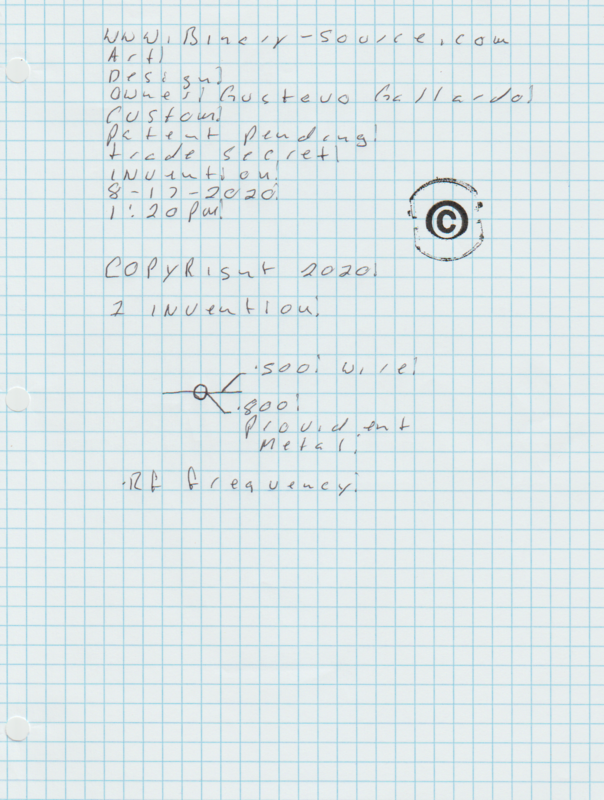 www.Binary-Source.com
Art!
Design!
Owner! Gustavo Gallardo!
Custom!
Patent Pending!
trade secret!
INvention!
8-17-2020!
1:20 PM!
©
COPYRight 2020!
1 INvention!
.500! wire!
.800!
Provident
Metal!
.Rf frequency!